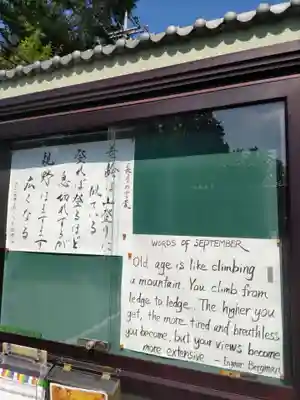 長月の言葉
老齢は山登りに
似ている
登れば登るほど
息切れするが
視野はますます
広くなる
WORDS OF SEPTEMBER
Old age is like climbing
a mountain. You climb from
ledge to ledge. The higher you
get, the more tired and breathless
you become, but your views become
more extensive - Ingmar Bergman